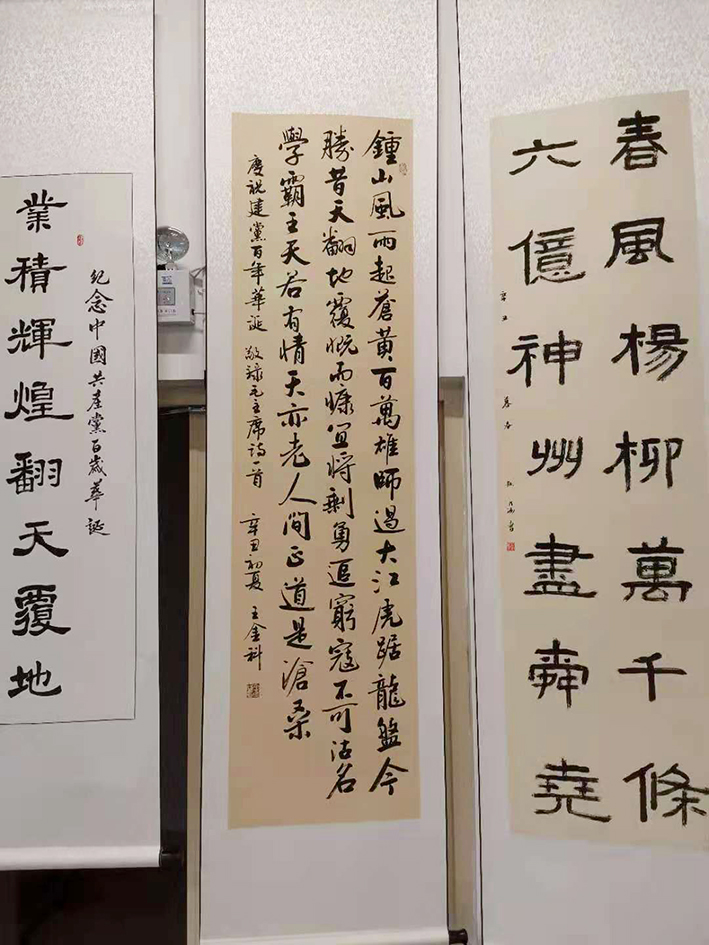 春風楊柳萬千條
六億神州盡舜堯
鍾山風雨起蒼黃百萬雄師過大江虎踞龍盤今
勝昔天翻地覆慨而慷宜將剩勇追窮寇不可沽名
學霸王天若有情天亦老人間正道是滄桑
慶祝建黨百年華誕 敬錄毛主席詩一首 辛丑初夏 王金科
紀念中國共產黨百歲華誕
業積輝煌翻天覆地